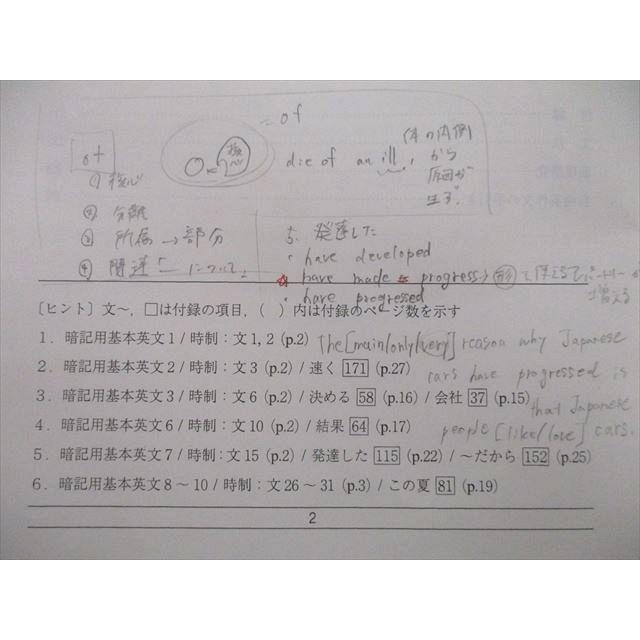 = of
of
核心
die of an ill,
(体の内側
から
原因が
生ず.
① 核心
② 分離
③ 所属 → 部分
④ 関連「〜について」
5. 発達した
・have developed
have made progress
形
増える
・have progressed
〔ヒント〕文〜, □は付録の項目, ( ) 内は付録のページ数を示す
1. 暗記用基本英文1 / 時制:文1, 2 (p.2)
The [main/only/very] reason why Japanese
2. 暗記用基本英文2 / 時制:文3 (p.2) / 速く 171 (p.27)
cars have progressed is
3. 暗記用基本英文3 / 時制:文6 (p.2) / 決める 58 (p.16) / 会社 37 (p.15)
that Japanese
4. 暗記用基本英文6 / 時制:文10 (p.2) / 結果 64 (p.17)
people [like/love] cars.
5. 暗記用基本英文7 / 時制:文15 (p.2) / 発達した 115 (p.22) / 〜だから 152 (p.25)
6. 暗記用基本英文8〜10 / 時制:文26〜31 (p.3) / この夏 81 (p.19)
2